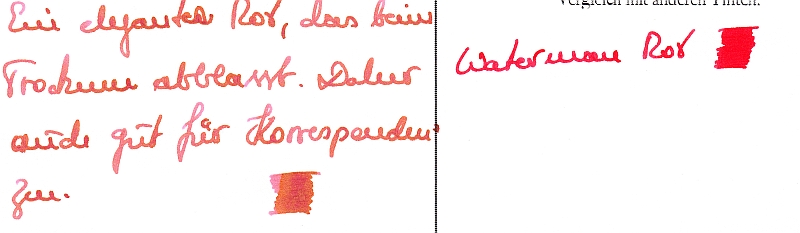 Ein elegantes Rot, das beim
Trocknen abblasst. Daher
auch gut für Korresponden-
zen.
Vergleich mit anderen Tinten.
Waterman Rot